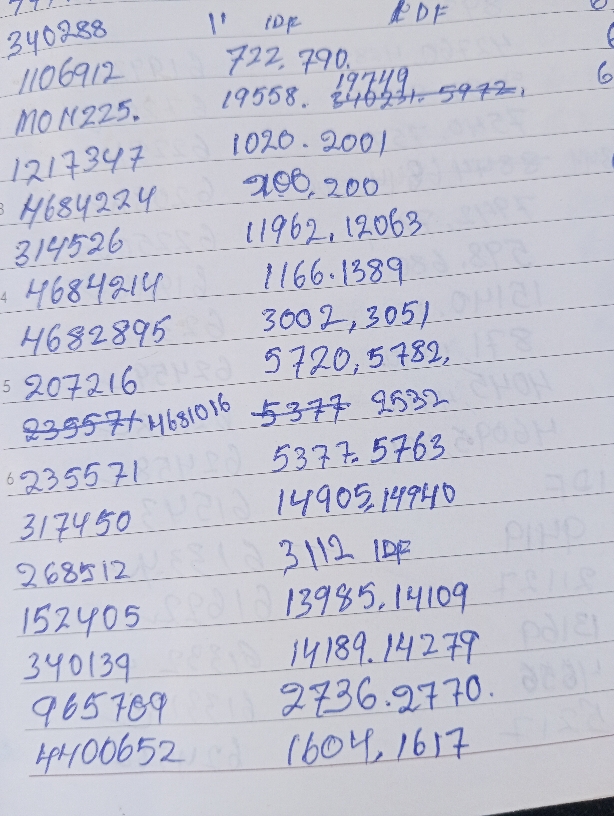 340288 '' IDF RDF
1106912 722. 790.
MON225. 19558. 19749 240231. 5972.
1217347 1020. 2001
4684224 200, 200
314526 11962, 12063
4 4684214 1166. 1389
4682895 3002, 3051
5 207216 5720, 5782,
235571 4681016 5377 2532
6 235571 5377. 5763
317450 14905, 14940
268512 3112 IDF
152405 13985, 14109
340139 14189. 14279
965769 2736. 2770.
4400652 1604, 1617